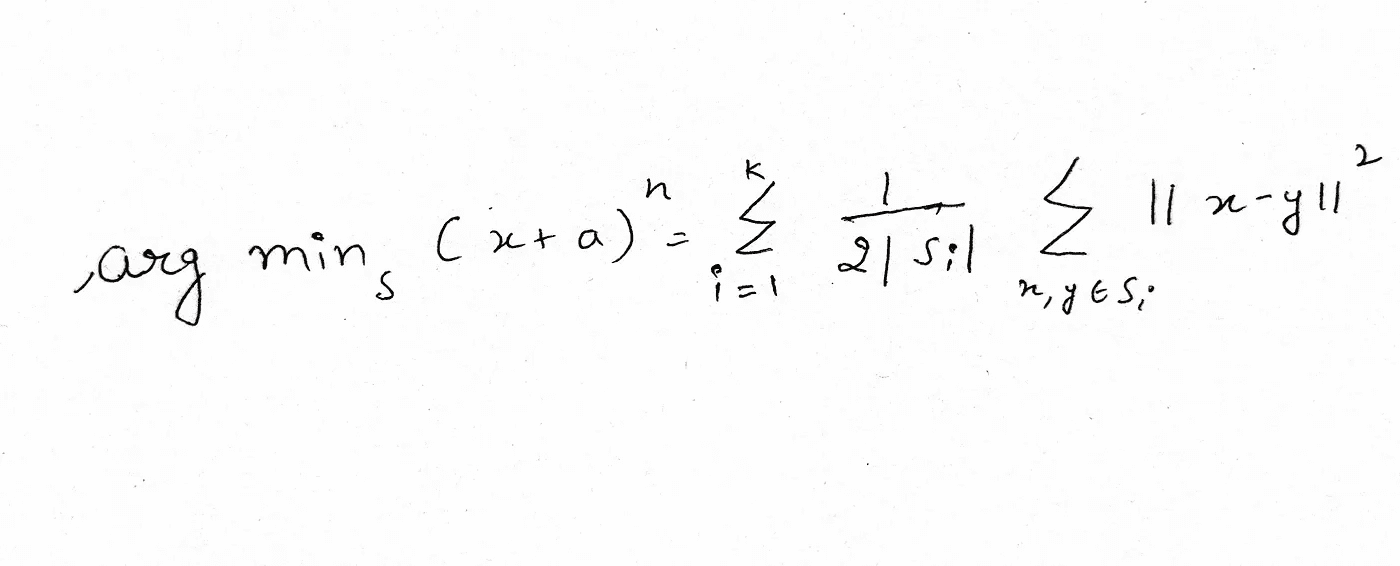 arg min_s (x+a)^n = ∑_{i=1}^{k} \frac{1}{2|S_i|} ∑_{x,y∈S_i} ||x-y||^2